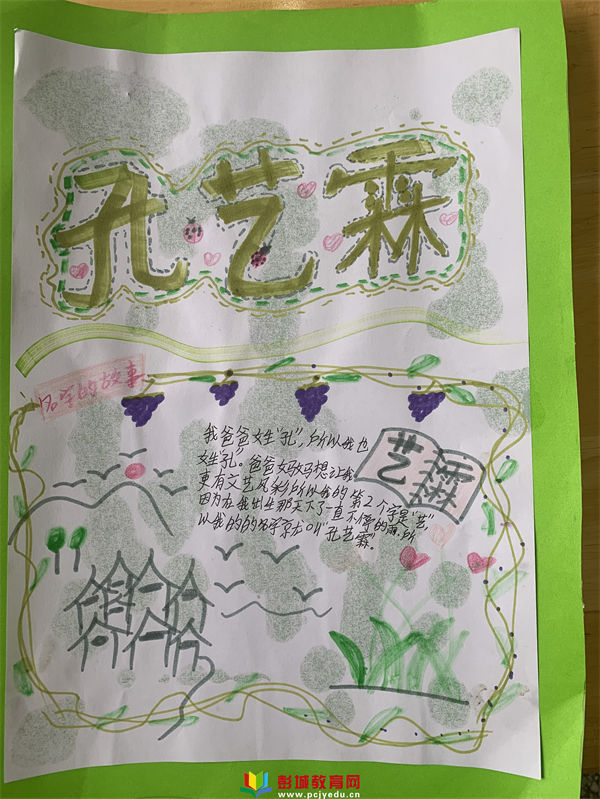 孔艺霖
名字的故事
我爸爸姓"孔",所以我也
姓"孔"。爸爸妈妈想让我
更有文艺风彩所以我的第2个字是"艺",
因为在我出生那天下了一直不停的雨,所
以我的的名字就叫孔艺霖"。
艺霖
彭城教育网
www.pcjyedu.cn